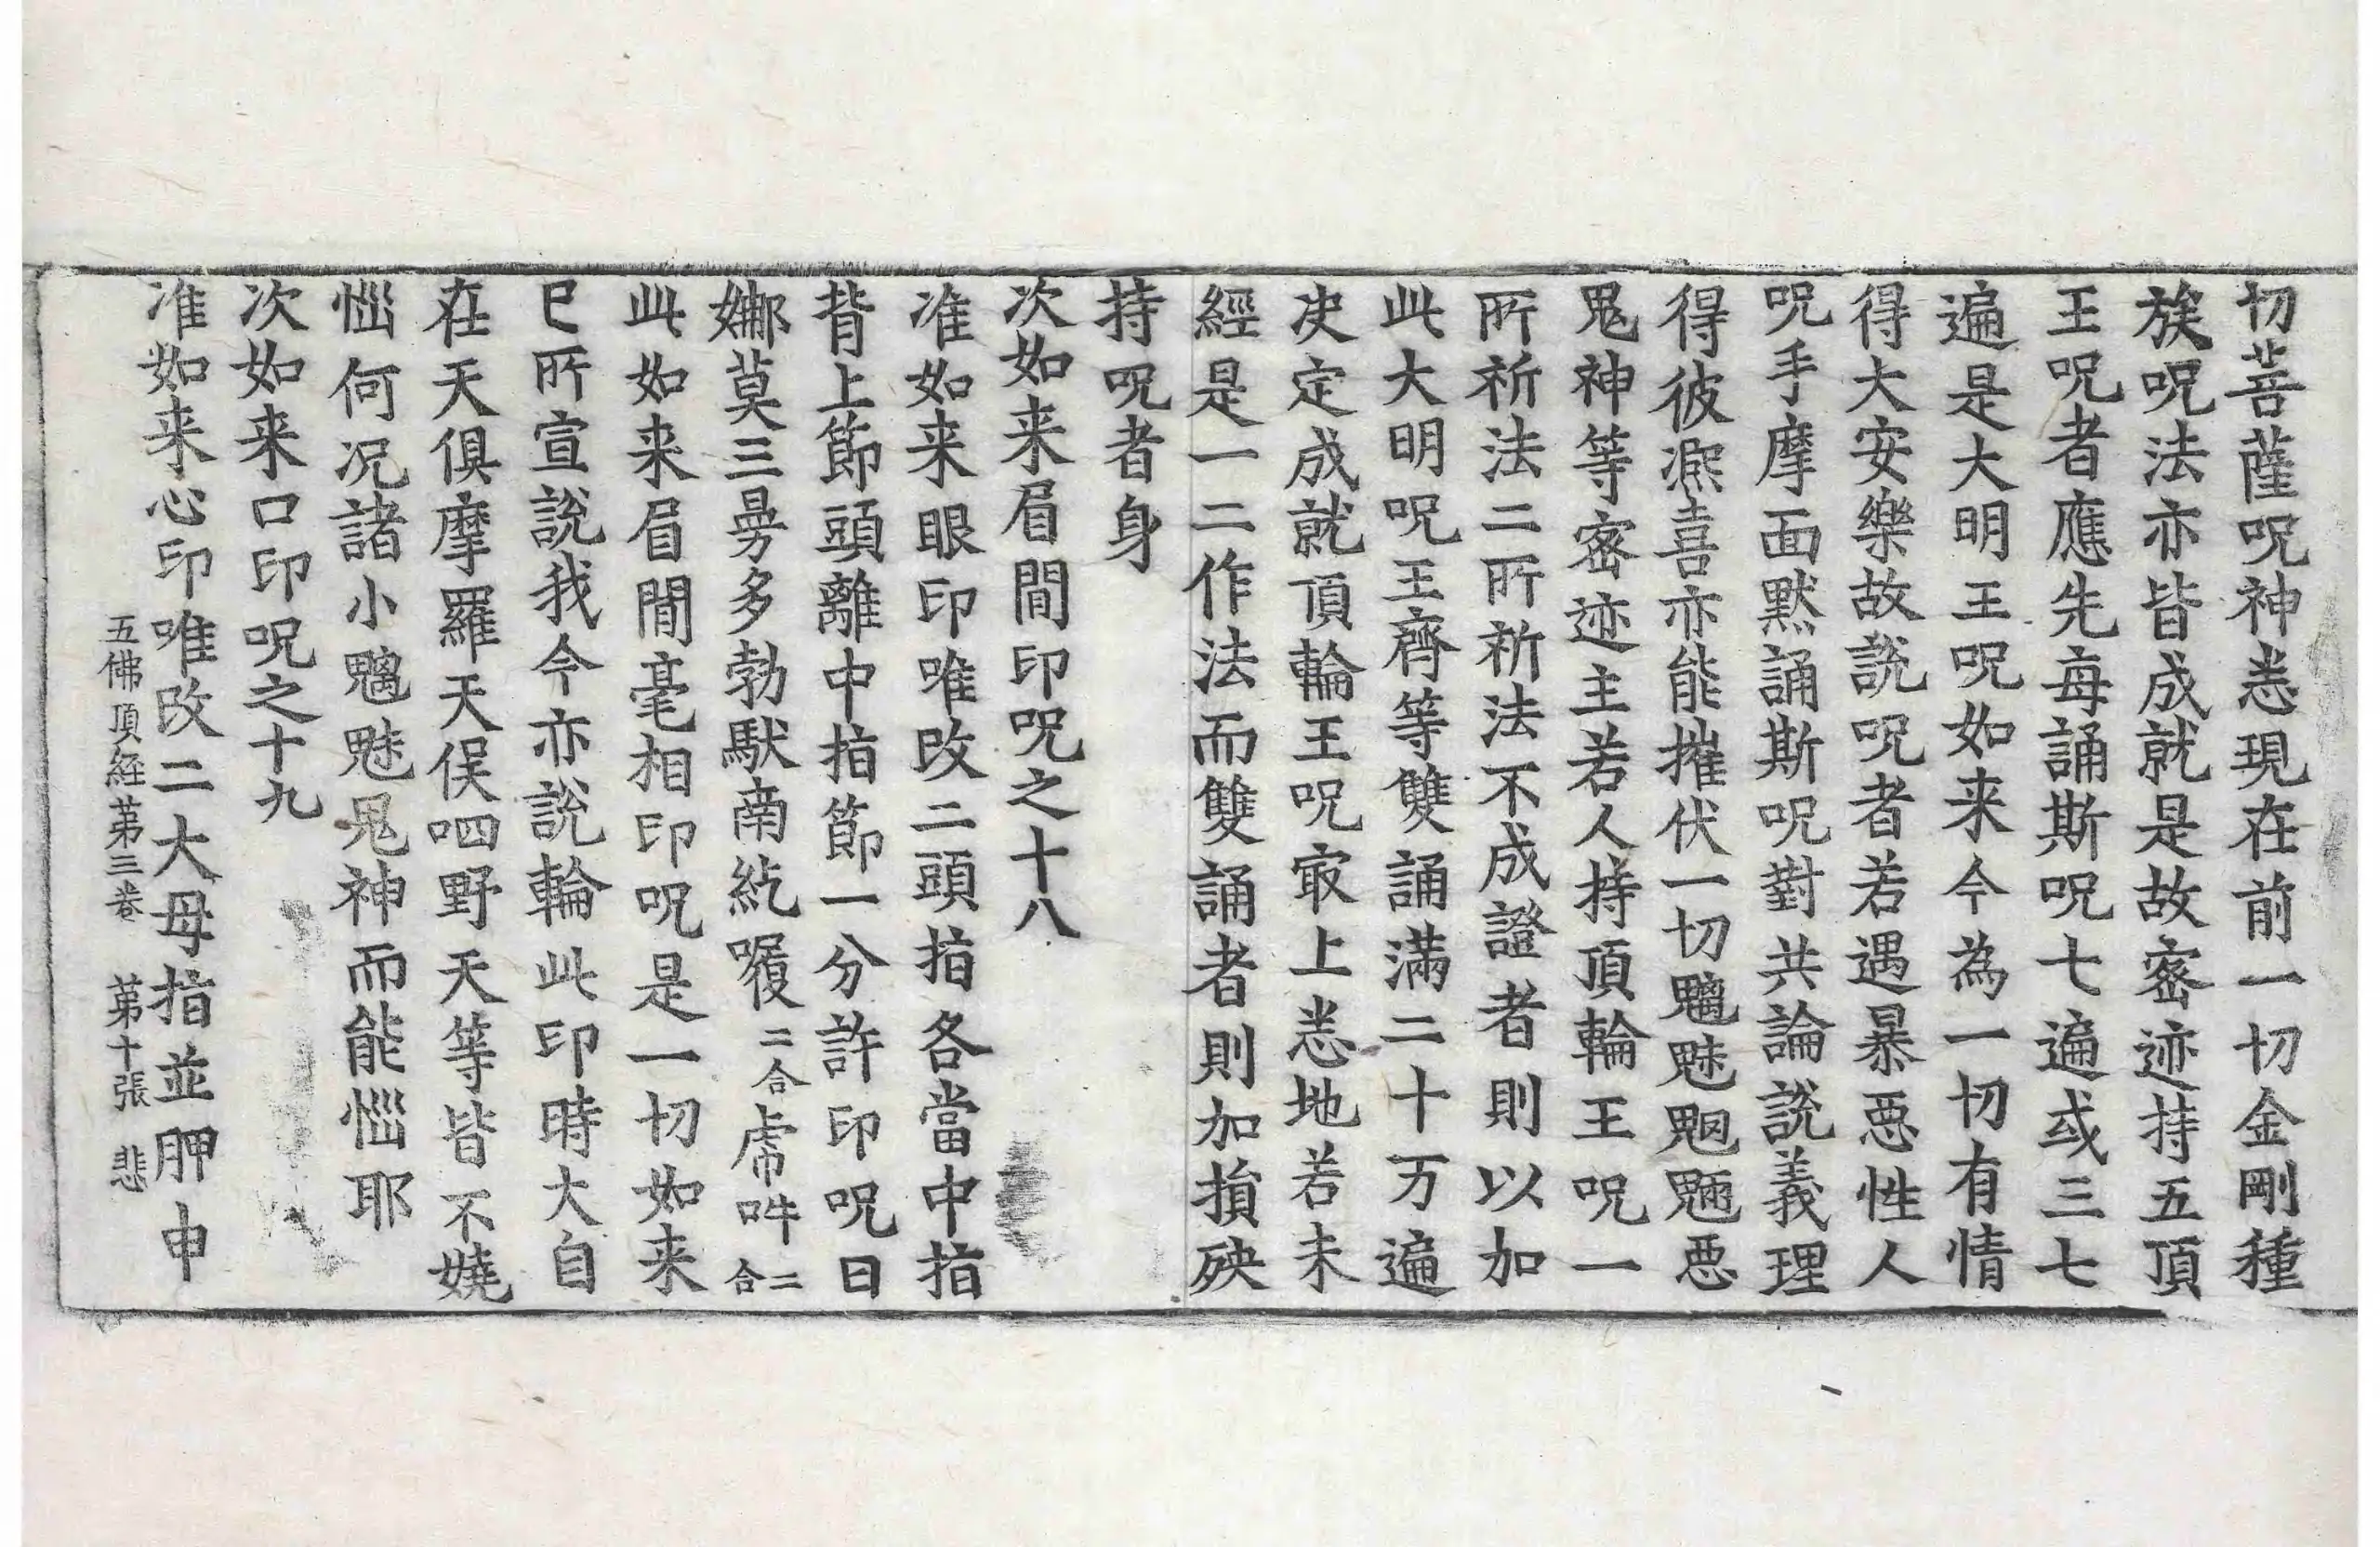 切菩薩呪神悉現在前一切金剛種
族呪法亦皆成就是故密迹持五頂
王呪者應先每誦斯呪七遍或三七
遍是大明王呪如来今為一切有情
得大安樂故說呪者若遇暴惡性人
呪手摩面默誦斯呪對共論說義理
得彼㷩喜亦能摧伏一切魑魅魍魎惡
鬼神等密迹主若人持頂輪王呪一
所祈法二所祈法不成證者則以加
此大明呪王齊等雙誦滿二十万遍
决定成就頂輪王呪㝡上悉地若未
經是一二作法而雙誦者則加損殃
持呪者身
次如来眉間印呪之十八
准如来眼印唯改二頭指各當中指
背上節頭離中指節一分許印呪曰
娜莫三曼多勃馱南紇㘑二合虎𤙖二合
此如来眉間毫相印呪是一切如来
已所宣說我今亦說輪此印時大自
在天俱摩羅天俁呬野天等皆不嬈
惱何况諸小魑魅鬼神而能惱耶
次如来口印呪之十九
准如来心印唯改二大母指並胛申
五佛頂経苐三卷　苐十張　悲